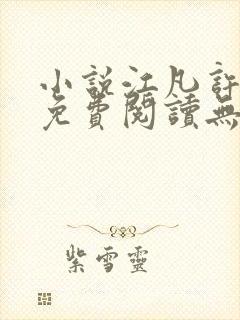 小說江凡許
免費閱讀無
紫雪靈